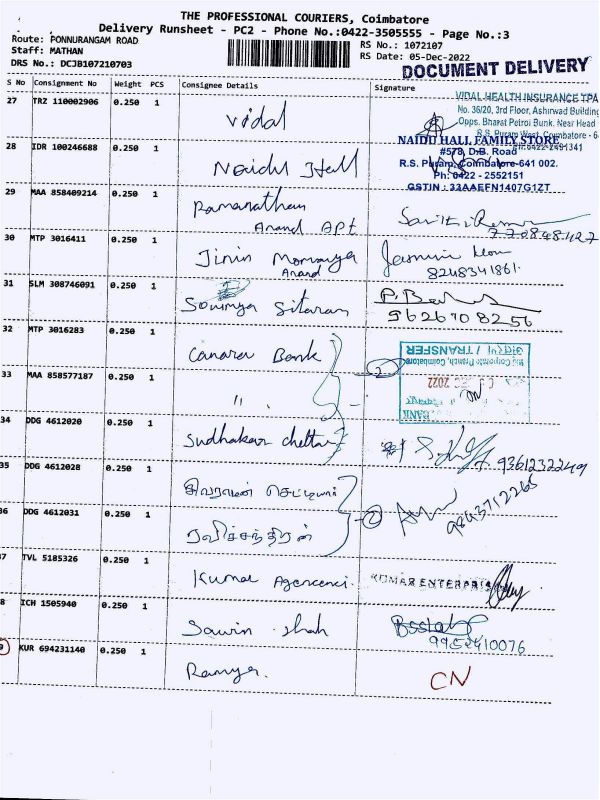 THE PROFESSIONAL COURIERS, Coimbatore
Delivery Runsheet - PC2 - Phone No.:0422-3505555 - Page No.:3
Route: PONNURANGAM ROAD
Staff: MATHAN
DRS No.: DCJB107210703
RS No.: 1072107
RS Date: 05-Dec-2022
DOCUMENT DELIVERY
S No Consignment No Weight PCS Consignee Details Signature
27 TRZ 110002906 0.250 1 Vidal
VIDAL HEALTH INSURANCE TPA
No. 36/20, 3rd Floor, Ashirwad Building
Opps. Bharat Petrol Bunk, Near Head
R.S. Puram West, Coimbatore - 6
28 IDR 100246688 0.250 1 Naidu Hall
NAIDU HALL FAMILY STORE
#578, D.B. Road
R.S. Puram, Coimbatore-641 002.
Ph: 0422 - 2552151
GSTIN : 33AAEFN1407G1ZT
29 MAA 858409214 0.250 1 Ramanathan
Anand Apt
30 MTP 3016411 0.250 1 Jinin
Anand
8248341861
31 SLM 308746091 0.250 1 Sowmya Sitaram
9626708256
32 MTP 3016283 0.250 1 Canara Bank
अंतरण / TRANSFER
DEC 2022
BANK
33 MAA 858577187 0.250 1 "
34 DDG 4612020 0.250 1 Sudhakar Chettar
9361232249
35 DDG 4612028 0.250 1 சிவராமன் செட்டியார்
9843712265
36 DDG 4612031 0.250 1 ரவிச்சந்திரன்
2
37 TVL 5185326 0.250 1 Kumar
KUMAR ENTERPRIS
8 ICH 1505940 0.250 1 Sawin Shah
9952410076
9 KUR 694231140 0.250 1 Ramya.
CN